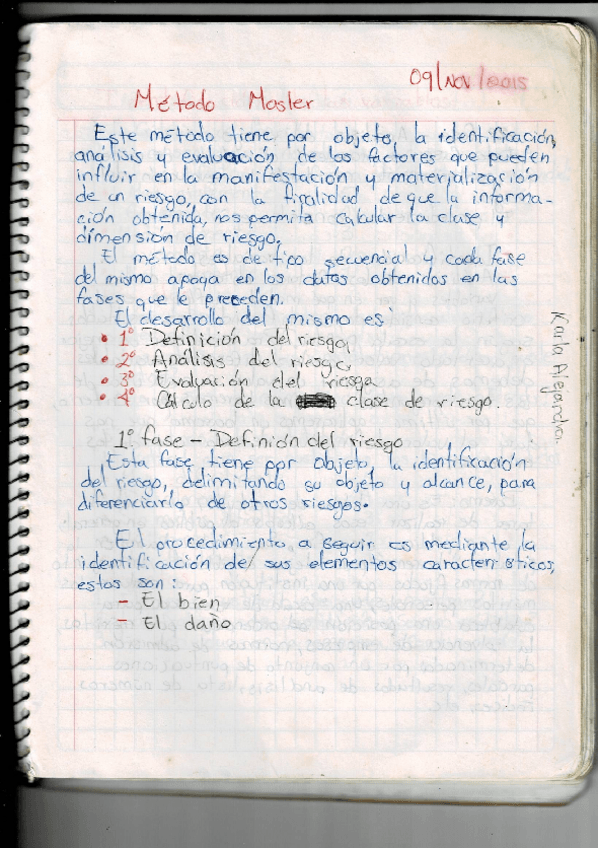 09/Nov/2015
Método Mosler
Este método tiene por objeto, la identificación,
análisis y evaluación, de los factores que pueden
influir en la manifestación y materialización
de un riesgo, con la finalidad de que la informa-
ción obtenida, nos permita calcular la clase y
dimensión de riesgo.
El método es de tipo secuencial y cada fase
del mismo apoya en los datos obtenidos en las
fases que le preceden.
El desarrollo del mismo es:
• 1º Definición del riesgo,
• 2º Análisis del riesgo,
• 3º Evaluación del riesgo
• 4º Cálculo de la clase de riesgo.
1º fase - Definión del riesgo
Esta fase tiene por objeto, la identificación
del riesgo, delimitando su objeto y alcance, para
diferenciarlo de otros riesgos.
El procedimiento a seguir es mediante la
identificación de sus elementos característicos,
estos son:
- El bien
- El daño
Karla Alejandra.